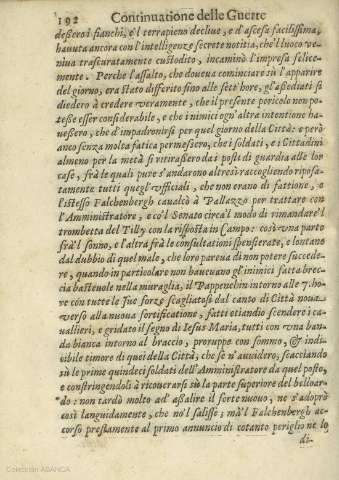 192 Continuatione delle Guerre
deßero i fianchi, e'l terrapieno decliue, e d'ascesa facilissima,
hauuta ancora con l'intelligenze secrete notitia, che'l luoco ve-
niua trascuratamente custodito, incaminò l'impresa felice-
mente. Perche l'assalto, che doueua cominciare sù l'apparire
del giorno, era stato differito sino alle sete hore, gl'assediati si
diedero à credere veramente, che il presente pericolo non po-
teße esser considerabile, e che i nimici ogn'altra intentione ha-
ueßero, che d'impadronirsi per quel giorno della Città: e però
anco senza molta fatica permesero, che i soldati, e i Cittadini
almeno per la metà si ritiraßero da i posti di guardia alle lor
case, frà le quali pure s'andarono altresì raccogliendo riposa-
tamente tutti quegl'vfficiali, che non erano di fattione, e
l'istesso Falchenbergh caualcò à Pallazzo per trattar con
l'Amministratore, e co'l Senato circa'l modo di rimandare'l
trombetta del Tilly con la risposta in Campo: così vna parte
frà'l sonno, e l'altra frà le consultationi spensierate, e lontane
dal dubbio di quel male, che loro pareua di non potere succede-
re, quando in particolare non haueuano gl'inimici fatta brec-
cia basteuole nella muraglia, il Pappenchin intorno alle 7. ho-
re con tutte le sue forze scagliatosi dal canto di Città noua
verso alla nuoua fortificatione, fatti etiandio scendere i ca-
uallieri, e gridato il segno di Iesus Maria, tutti con vna ban-
da bianca intorno al braccio, proruppe con sommo, & indi-
cibile timore di quei della Città, che se n'auuidero, scacciando
sù le prime quindeci soldati dell'Amministratore da quel posto,
e constringendoli à ricourarsi sù la parte superiore del belloar-
do: non tardò molto ad' aßalire il forte nuouo, ne s'adoprò
così languidamente, che no'l salisse; mà'l Falchenbergh ac-
corso prestamente al primo annuncio di cotanto periglio ne lo
di-
Colección ABANCA